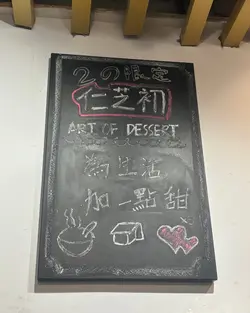 2の限定
仁芝初
ART OF DESSERT
為生活
加一點甜